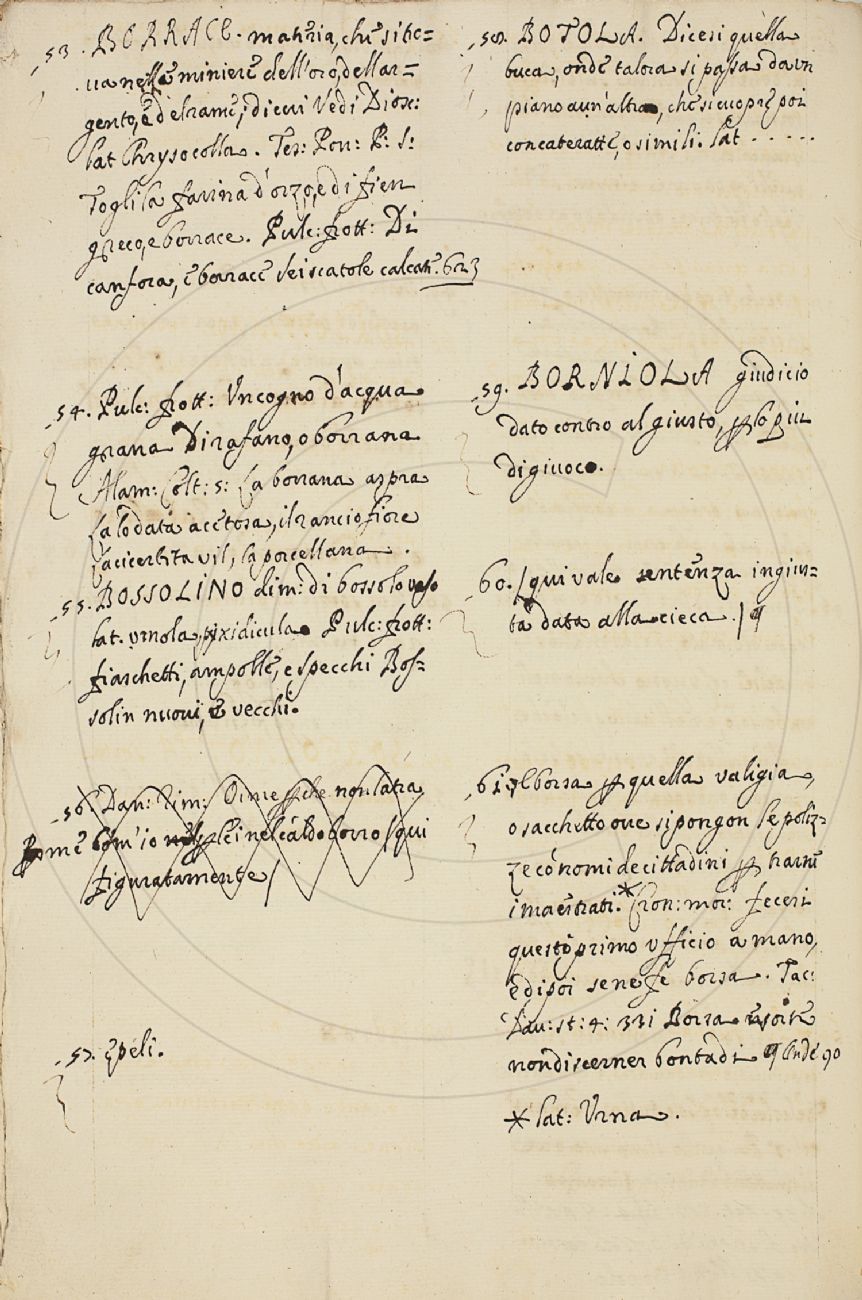 53. BORRACE. materia, che si tro=
va nelle miniere dell'oro, dell'ar=
gento, e del rame, di cui Vedi Diosc:
lat Chrysocolla. Tes: Pov: P: S:
Togli la farina d'orzo, e di fien
greco, e borrace. Pulc: frott: Di
canfora, e borrace sei scatole calcate.
54. Pulc: frott: Un cogno d'acqua
grana Di rafano, o borrana
Alam: Colt: 5: La borrana aspra
La lodata acetosa, il rancio fiore
La cicerbita vil, la porcellana.
55. BOSSOLINO dim: di bossolo vaso
lat. urnola, pixidicula. Pulc: frott:
fiaschetti, ampolle, e specchi Bos=
solin nuovi, e vecchi.
56. Dan: rim: Oime perche non latra
Per me com'io per lei nel caldo borro / qui
figuratamente /
57. e peli.
58. BOTOLA. Dicesi quella
buca, onde talora si passa da un
piano a un'altro, che si cuopre poi
con cateratte, o simili. Lat . . . . .
59. BORNIOLA giudicio
dato contro al giusto, per lo più
di giuoco.
60. / qui vale sentenza ingius=
ta data alla cieca. /
61. E borsa per quella valigia,
o sacchetto ove si pongon le poliz=
ze co' nomi de cittadini per trarne
i maestrati. * Cron: mor: fecesi
questo primo ufficio a mano,
e di poi se ne fe borsa. Tac:
Dav: st: 4: 331 Borsa e sorte
non discerner bontadi
* Lat: Urna.